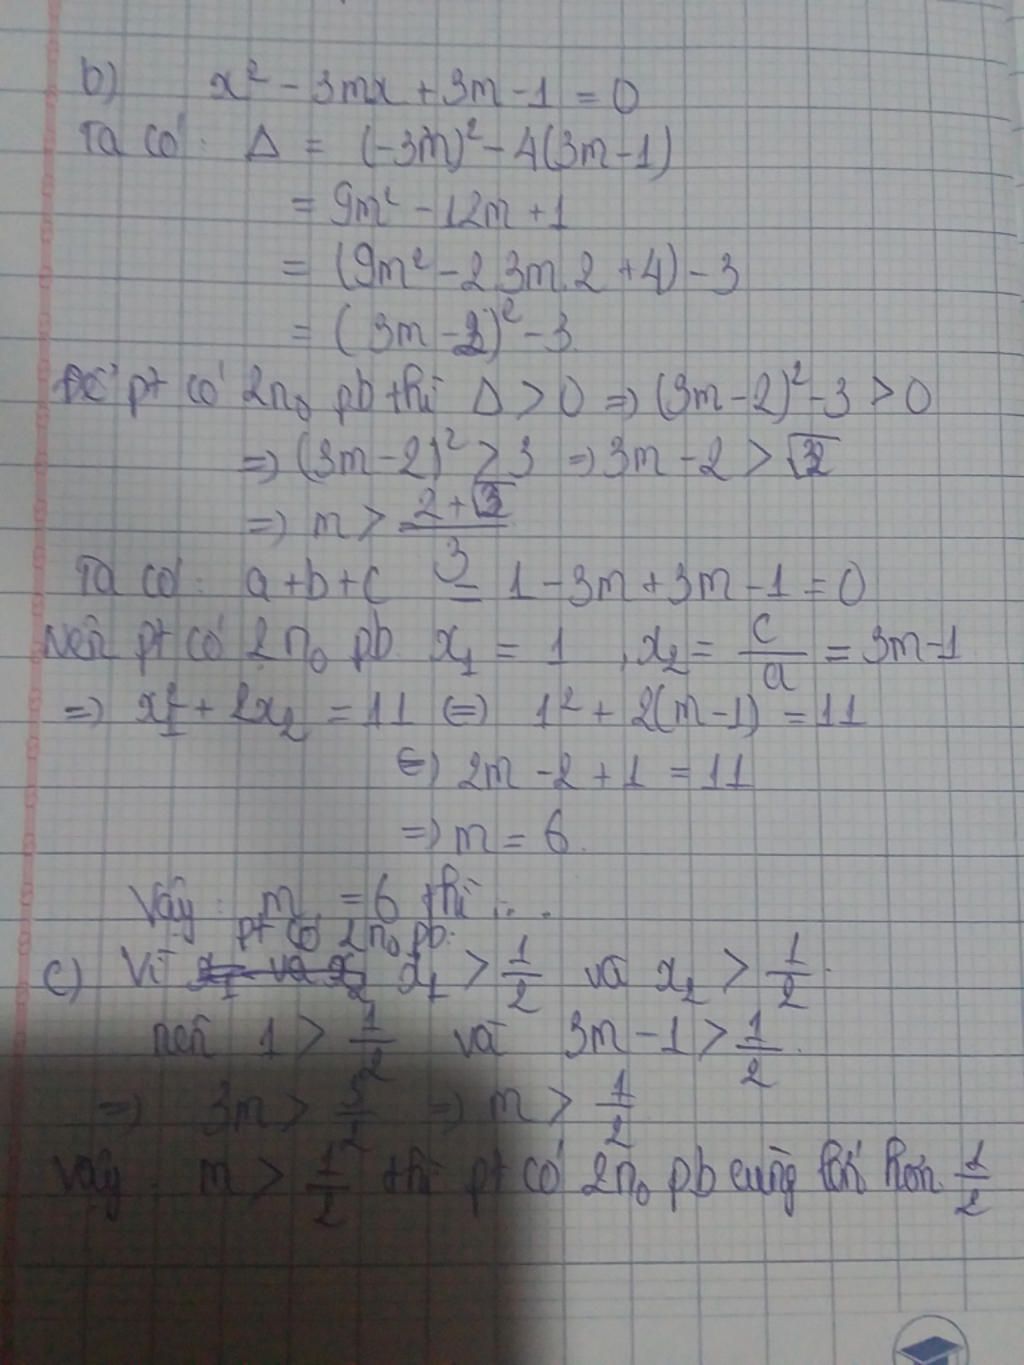 b) x² - 3mx + 3m - 1 = 0
Ta có: Δ = (-3m)² - 4(3m - 1)
= 9m² - 12m + 1
= (9m² - 2.3m.2 + 4) - 3
= (3m - 2)² - 3
Để pt có 2n₀ pb thì Δ > 0 => (3m - 2)² - 3 > 0
=> (3m - 2)² > 3 => 3m - 2 > √3
=> m > (2 + √3)/3
Ta có: a + b + c = 1 - 3m + 3m - 1 = 0
Nên pt có 2n₀ pb x₁ = 1, x₂ = c/a = 3m - 1
=> x₁² + 2x₂ = 11 <=> 1² + 2(m - 1) = 11
<=> 2m - 2 + 1 = 11
=> m = 6.
Vậy: m = 6 thì ...
pt có 2n₀ pb.
c) Vì x₁ > 1/2 và x₂ > 1/2.
nên 1 > 1/2 và 3m - 1 > 1/2.
=> 3m > 3/2 => m > 1/2
Vậy: m > 1/2 thì pt có 2n₀ pb cùng lớn hơn 1/2